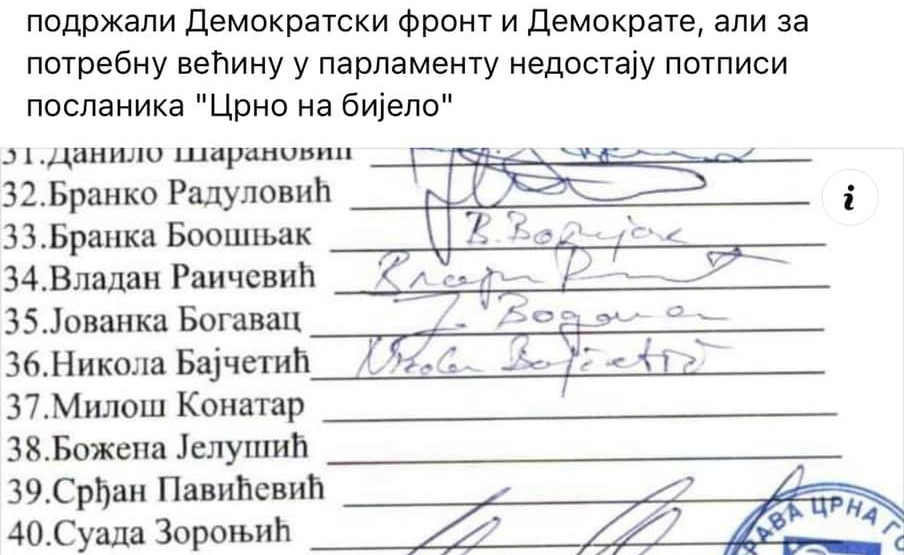 подржали Демократски фронт и Демократе, али за
потребну већину у парламенту недостају потписи
посланика "Црно на бијело"
31.Данило Шарановић
32.Бранко Радуловић
33.Бранка Боошњак
34.Владан Раичевић
35.Јованка Богавац
36.Никола Бајчетић
37.Милош Конатар
38.Божена Јелушић
39.Срђан Павићевић
40.Суада Зороњић
ЦРНА